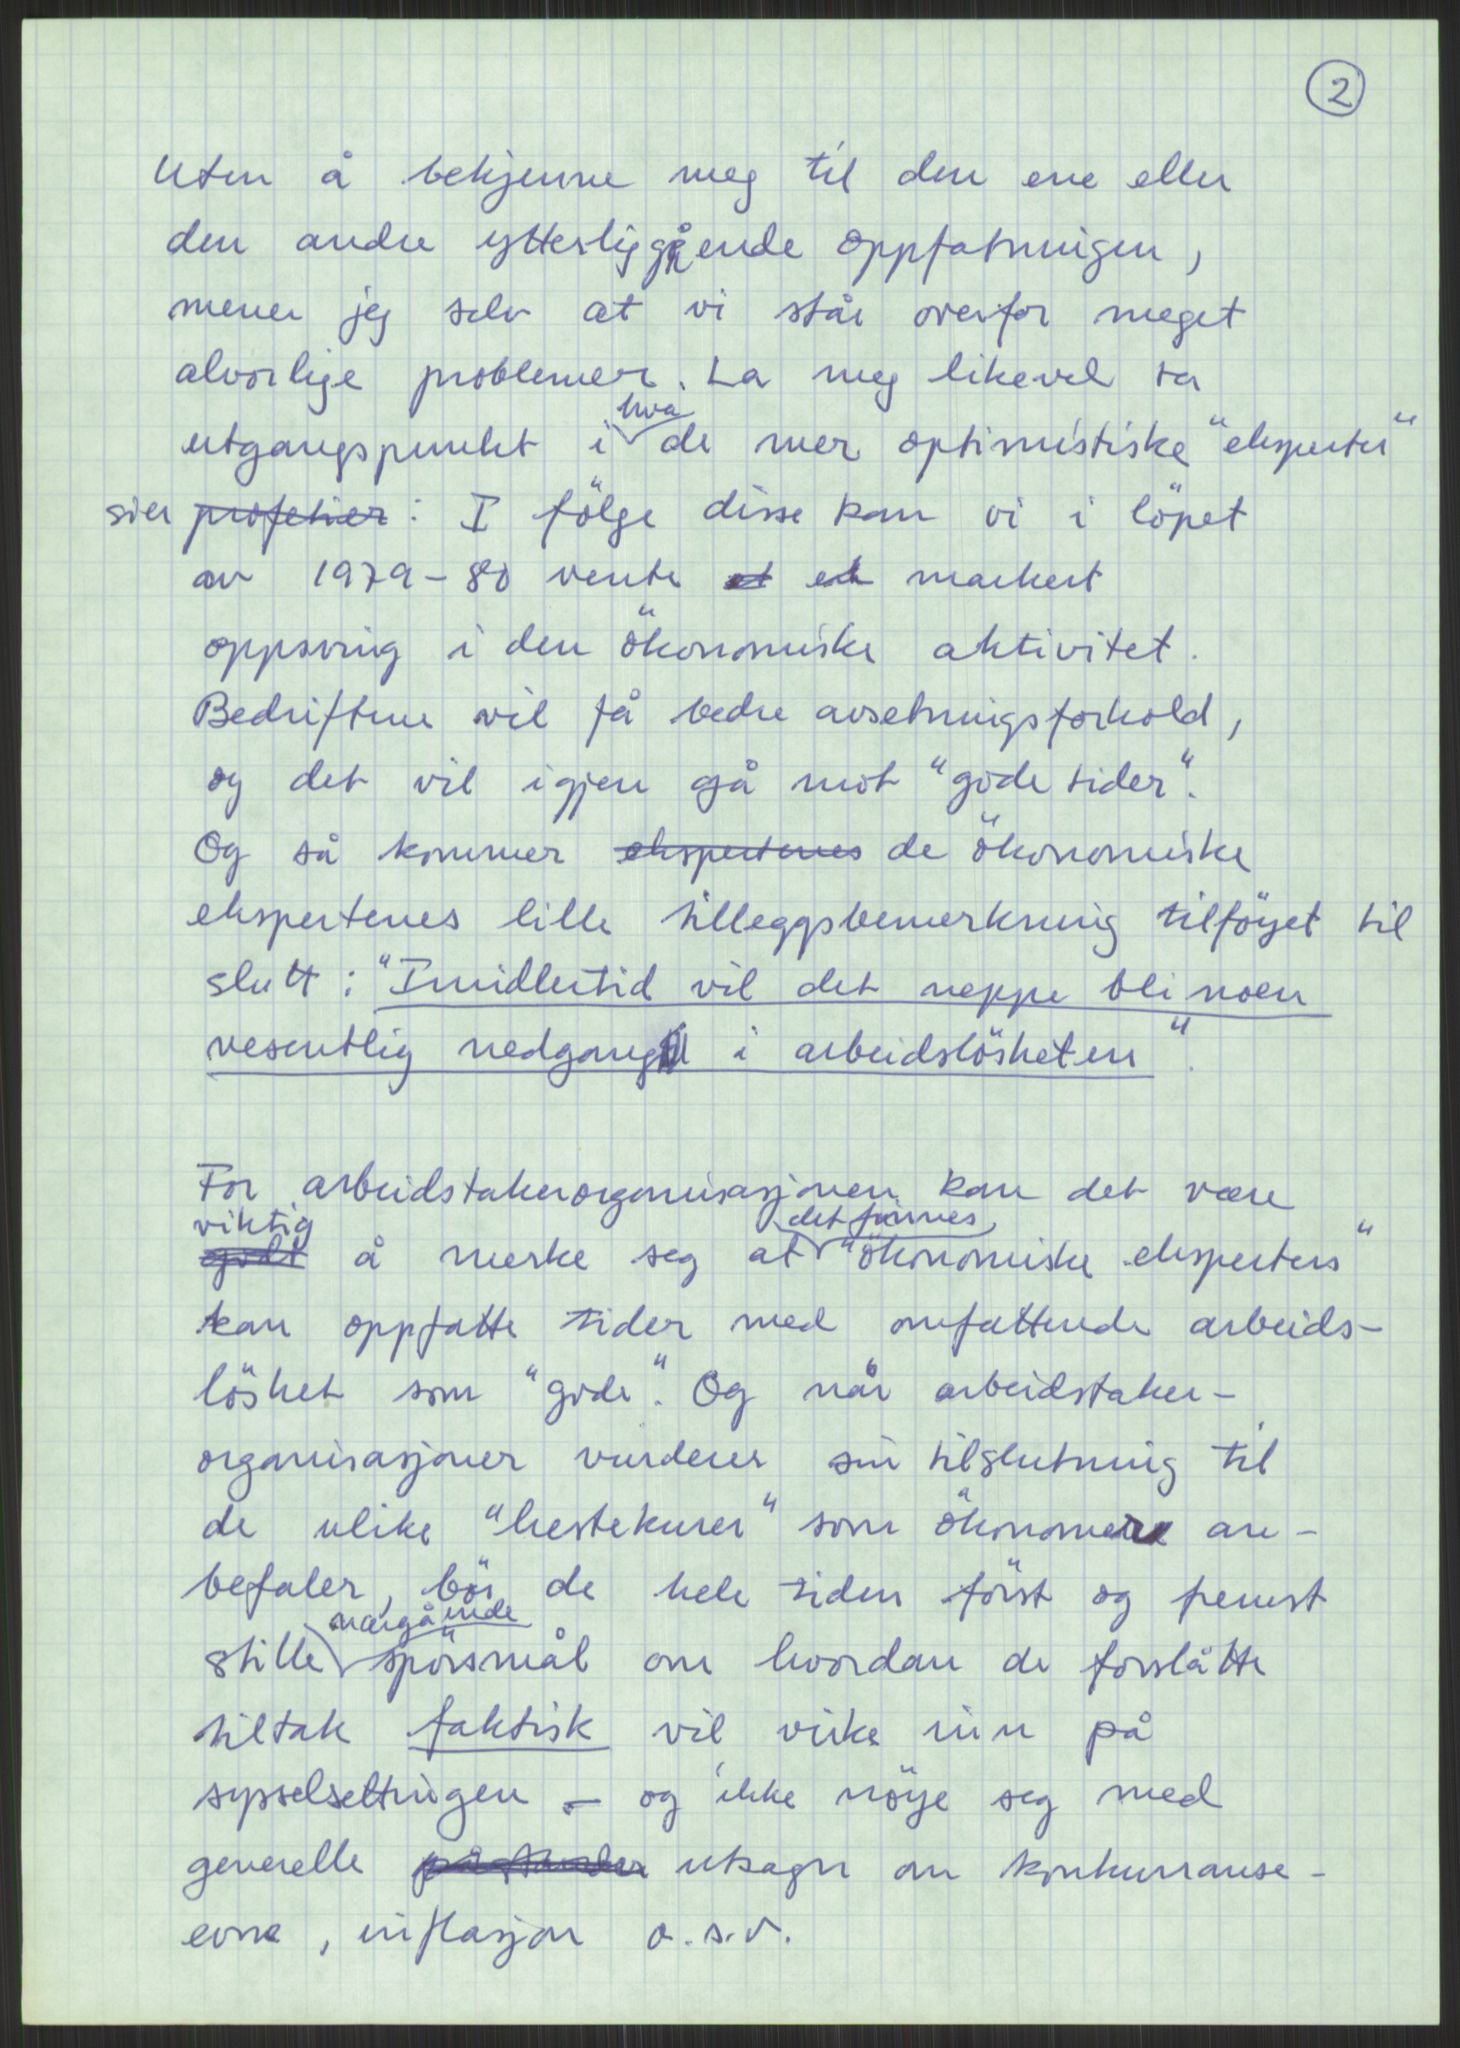 2
Uten å bekjenne meg til den ene eller
den andre ytterliggående oppfatningen,
mener jeg selv at vi står overfor meget
alvorlige problemer. La meg likevel ta
hva
utgangspunkt i de mer optimistiske "eksperter"
sier profetier: I fölge disse kan vi i löpet
av 1979-80 vente et et markert
oppsving i den ökonomiske aktivitet.
Bedriftene vil få bedre avsetningsforhold,
og det vil igjen gå mot "gode tider".
Og så kommer ekspertenes de ökonomiske
ekspertenes lille tilleggsbemerkning tilföyet til
slutt: "Imidlertid vil det neppe bli noen
vesentlig nedgang i arbeidslösheten".
For arbeidstakerorganisasjonen kan det være
viktig det finnes
godt å merke seg at "ökonomiske eksperters"
kan oppfatte tider med omfattende arbeids-
löshet som "gode". Og når arbeidstaker-
organisasjoner vurderer sin tilslutning til
de ulike "hestekurer" som ökonomer an-
befaler, bör de hele tiden först og fremst
nærgående
stille spörsmål om hvordan de foreslåtte
tiltak faktisk vil virke inn på
sysselsettingen - og ikke nöye seg med
generelle påstander utsagn om konkurranse-
evne, inflasjon o.s.v.